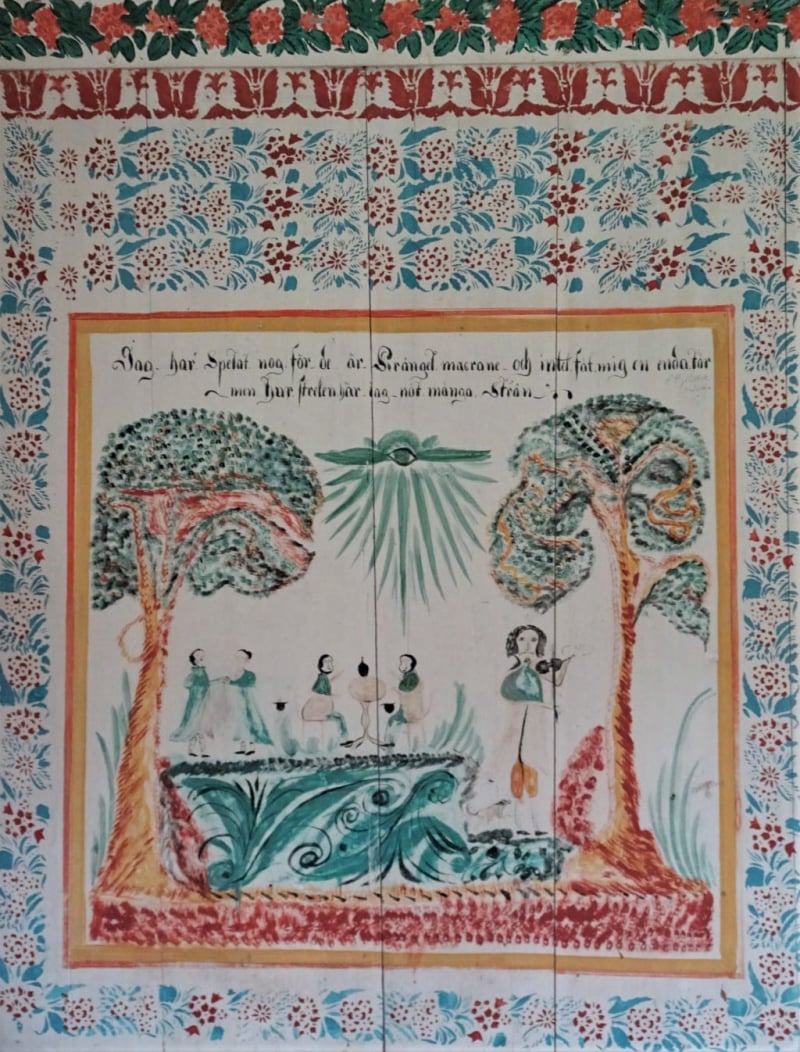 Jag har Spelat nog för de är Krångel macrane och intet fåt mig en enda tår
men hur streten har jag nöt många Strån